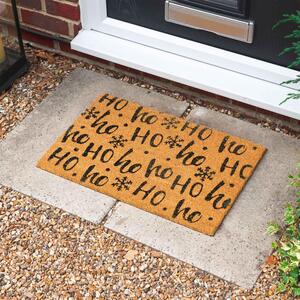 HO ho HO ho
HO ho HO ho
HO ho HO ho
HO ho HO ho
HO ho HO ho